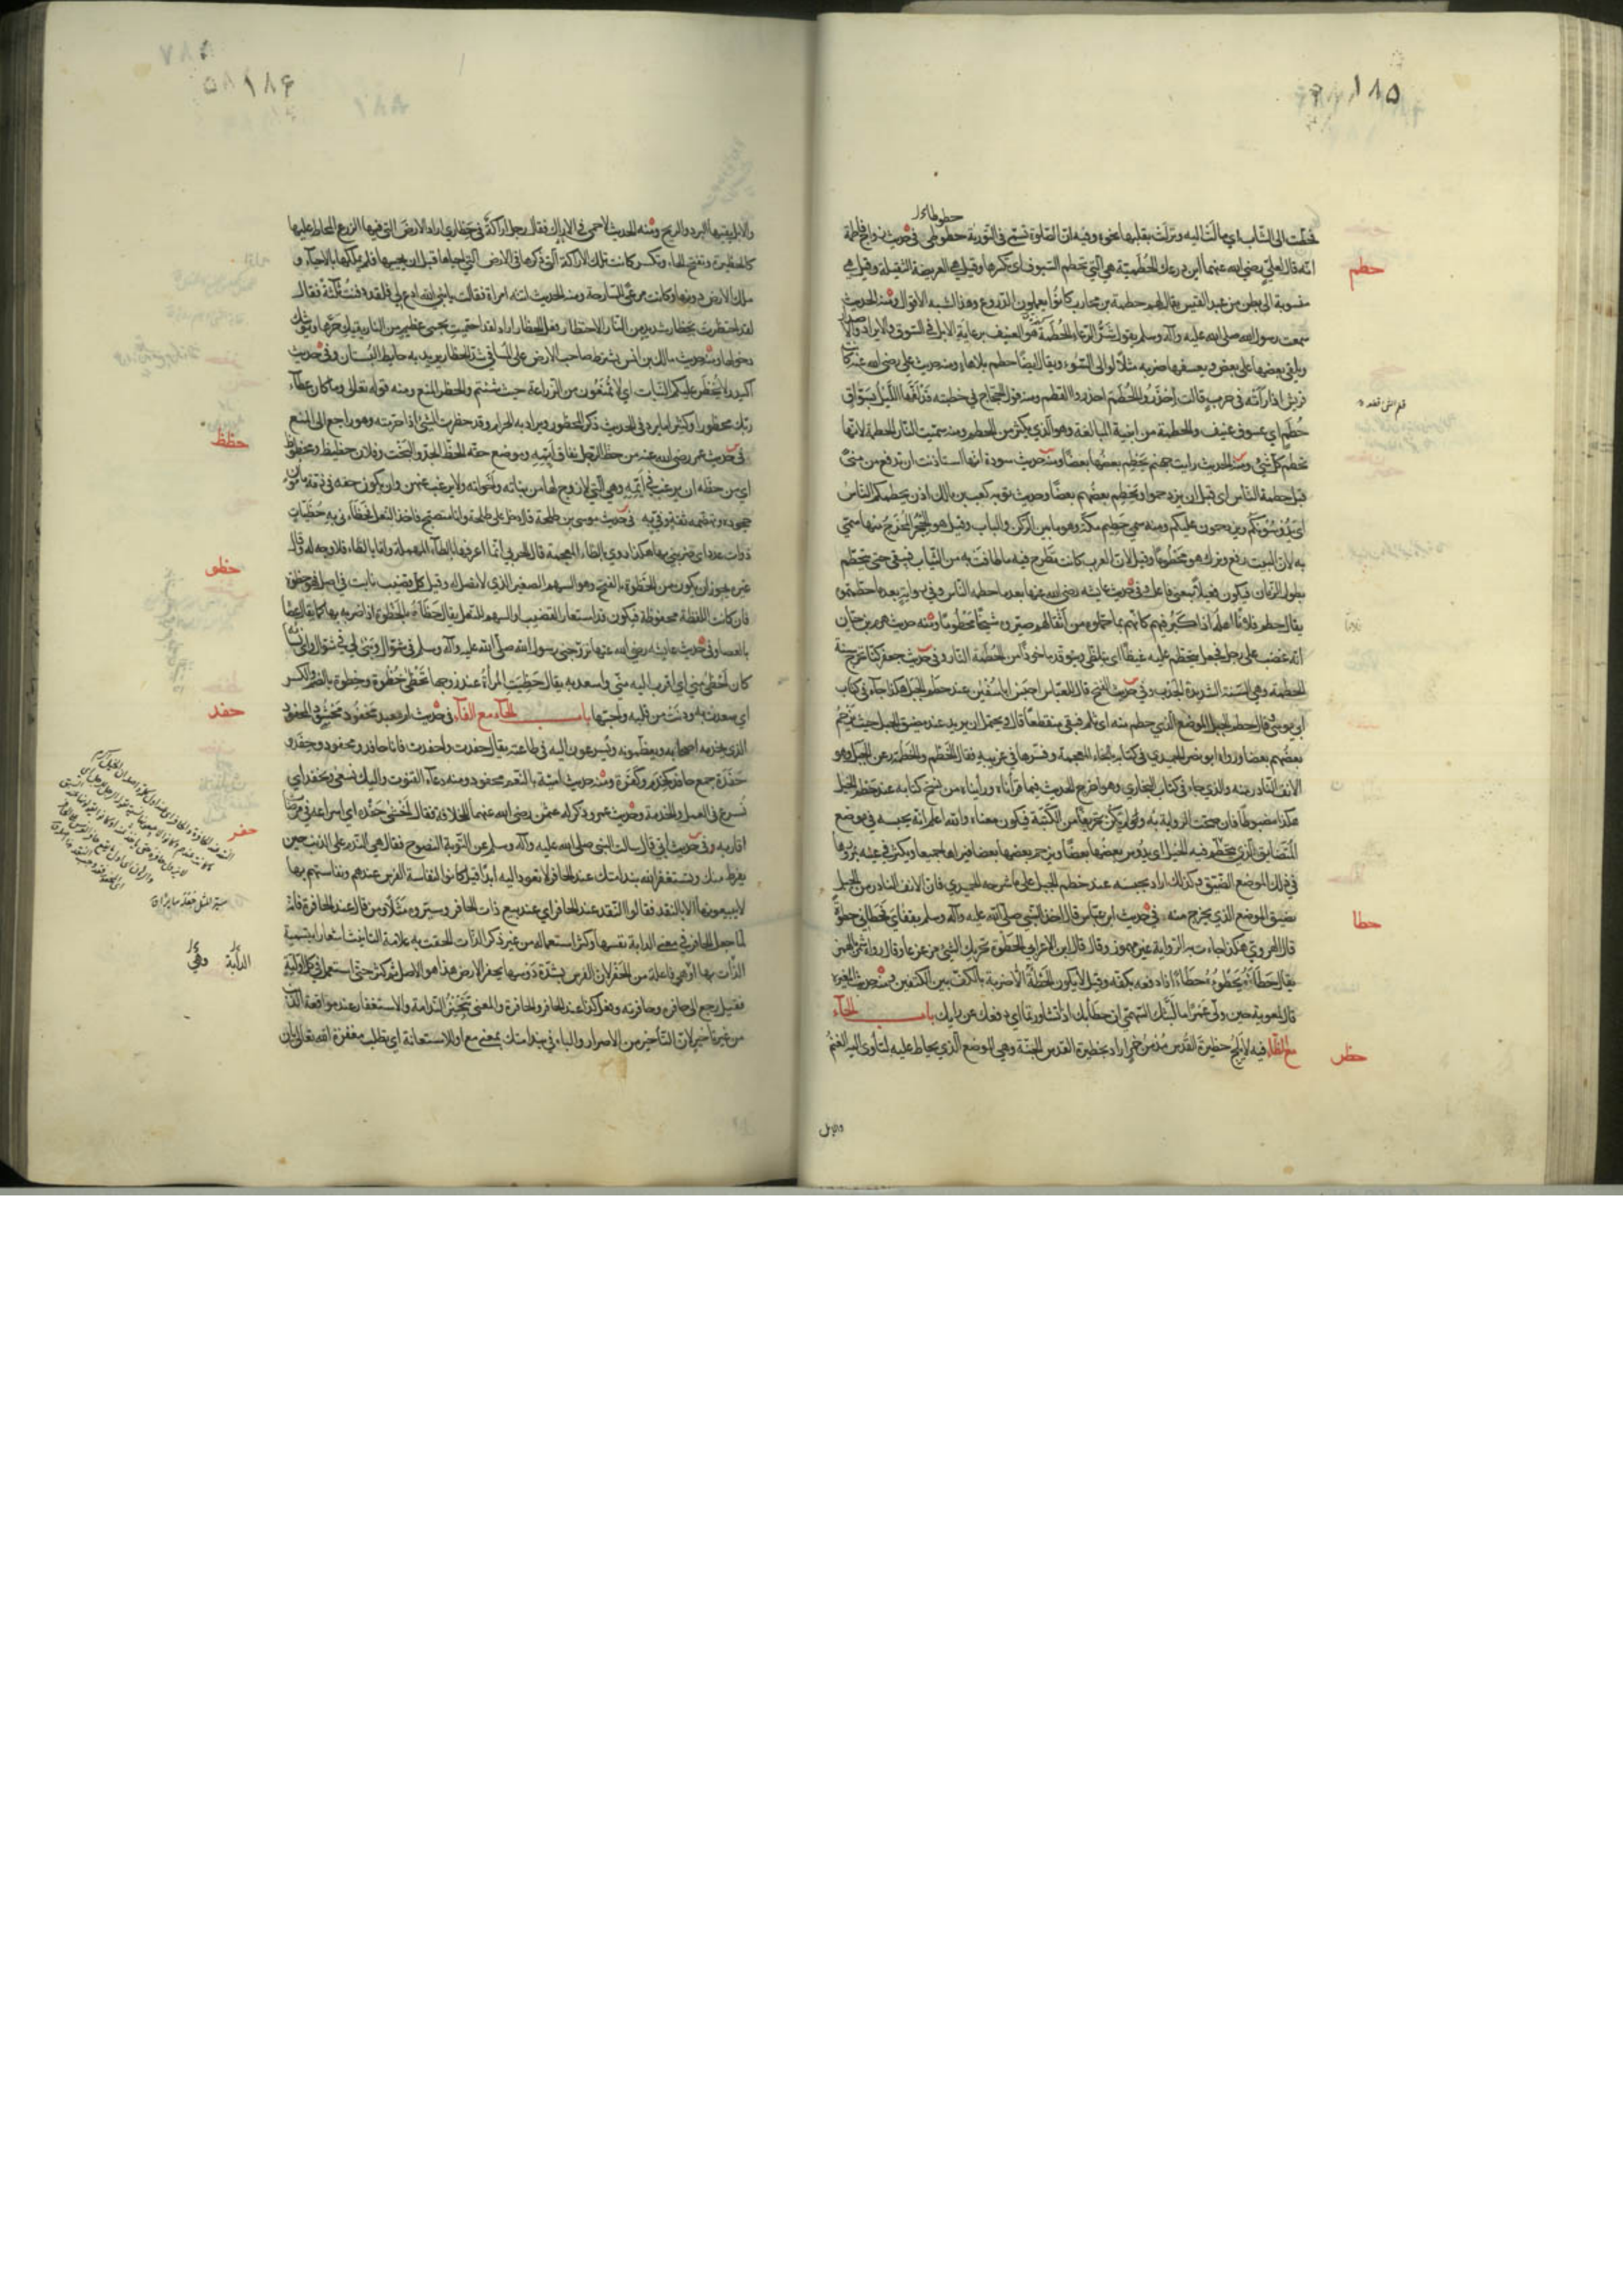 ١٨۵
فحطّت الى الشّاب اي مالت اليه ونزلت بقلبها نحوه وفيه انّ الصّلوة تسمّى فى التّورية حطوطى فى حديث زواج فاطمة
حطم
انّه قال لعليّ رضي الله عنهما اين درعك الحُطَميّة هي التي تحطم السّيوف اى تكسرها وقيل هي العريضة الثقيلة وقيل هي
منسوبة الى بطن من عبد القيس يقال لهم حطمة بن محارب كانوا يعملون الدّروع وهذا اشبه الاقوال ومنه الحديث
سمعت رسول الله صلى الله عليه وآله وسلم يقول شرّ الرّعاء الحُطَمَة هو العنيف برعاية الابل فى السّوق والايراد والاصدار
ويلقي بعضها على بعض ويعسفها ضربه مثلا لوالى السّوء ويقال ايضا حطم بلا هاء ومنه حديث علي رضي الله عنه كانت
قريش اذا رأته فى حرب قالت احذروا الحُطَم احذروا القطم ومنه قول الحجاج في خطبته قد لفّها اللّيل بسوّاق
حُطَم اي عسوف عنيف والحطمة من ابنية المبالغة وهو الّذي يكثر من الحطم ومنه سميت النار الحطمة لانها
تحطم كلّ شئ ومنه الحديث رايت جهنم يحطم بعضها بعضا ومنه حديث سودة انها استاذنت ان تدفع من منى
قبل حطمة النّاس اى قبل ان يزدحموا ويحطم بعضهم بعضا وحديث توبة كعب بن مالك اذن يحطمكم الناس
اى يدوسونكم ويزدحمون عليكم ومنه سمي حطيم مكّة وهو ما بين الرّكن والباب وقيل هو الحِجر المُخرج منها سمّى
به لان البيت رفع وترك هو محطوما وقيل لان العرب كانت تطرح فيه ما طافت به من الثّياب فبقى حتى تحطّم
بطول الزّمان فيكون فعيلا بمعنى فاعل وفى حديث عايشه رضي الله عنها بعد ما حطمه النّاس وفى رواية بعد ما حطمتموه
يقال حطم فلانا اهله اذا كبر فيهم كانهم بما حمّلوه من اثقالهم صيّروه شيخا محطوما ومنه حديث هرم بن حيان
انّه غضب على رجل فجعل يتحطّم عليه غيظا اى يتلظّى ويتوقد ماخوذ من الحُطَمَة النار وفى حديث جعفر كنّا نخرج سنة
الحطمة وهي السّنة الشّديدة الجدب وفى حديث الفتح قال للعبّاس احبس ابا سُفين عند حطم الجبل هكذا جآء فى كتاب
ابي موسى وقال حطم الجبل الموضع الّذي حطم منه اى ثلم فبقى منقطعا قال ويحتمل ان يريد عند مضيق الجبل حيث يزحم
بعضهم بعضا ورواه ابو نصر الحميدي فى كتابه بالخاء المعجمة وفسّرها فى غريبه فقال الخطم والخطمة رعن الجبل وهو
الانف النّادر منه والذي جاء فى كتاب البخاري وهو اخرج الحديث فيما قرأناه ورأيناه من نسخ كتابه عند خطم الخيل
هكذا مضبوطا فان صحّت الرّواية به ولم يكن تحريفا من الكتبة فيكون معناه والله اعلم انه يحبسه في موضع
المتضايق الّذي تتحطّم فيه الخيل اى يدوس بعضها بعضا ويزحم بعضها بعضا فيراها جميعا وتكثر في عينه بمرورها
فى ذلك الموضع الضيّق وكذلك اراد بحبسه عند خطم الجبل على ما شرحه الحميدي فان الانف النادر من الجبل
حطا
يضيّق الموضع الذي يخرج منه فى حديث ابن عبّاس قال اخذ النّبي صلّى الله عليه وآله وسلم بقفاي فحطاني حطوة
قال الهروي هكذا جاءت به الرّواية غير مهموز وقال قال ابن الاعرابي الحطوة تحريك الشئ مزعزعا وقال رواه شمر بالهمز
يقال حطأه يحطؤه حطأ اذا دفعه بكفّه وقيل لا يكون الحطأة الّا ضربة بالكفّ بين الكتفين ومنه حديث المغيرة
قال لمعوية حين ولّى عمرا ما لبّثك السّهمي ان حطأ بك اذ تشاورتما اي دفعك عن رايك باب الحآء
حظر
مع الظّاء فيه لا يلج حظيرة القدس مُدمن خمر اراد بحظيرة القدس الجنّة وهى الموضع الذي يحاط عليه لتأوى اليه الغنم
والابل
١٨۶
والابل يقيها البرد والريح ومنه الحديث لا حمى فى الاراك فقال رجل اراكة في حظاري اراد الارض التى فيها الزرع المحاط عليها
كالحظيرة وتفتح الحاء وتكسر كانت تلك الاراكة الّتى ذكرها فى الارض التى احياها قبل ان يحييها فلم يملكها بالاحيآء و
ملك الارض دونها وكانت مرعى السّارحة ومنه الحديث اتته امراة فقالت يا نبي الله ادع لي فلقد دفنت ثلثة فقال
لقد احتظرت بحظار شديد من النّار الاحتظار فعل الحظار اراد لقد احتميت بحمى عظيم من النار يقيك حرّها ويؤمّنك
دخولها ومنه حديث مالك بن انس يشترط صاحب الارض على المساقي شدّ الحظار يريد به حايط البُستان وفى حديث
اكيدر لا يُحظر عليكم النّبات اي لا تُمنعون من الزّراعة حيث شئتم والحظر المنع ومنه قوله تعالى وما كان عطآء
ربّك محظورا وكثيرا ما يرد فى الحديث ذكر المحظور ويراد به الحرام وقد حظرت الشئ اذا حرمته وهو راجع الى المنع
حظظ
فى حديث عمر رضي الله عنه من حظّ الرّجل نفاق أيّمِه وموضع حقّه الحظّ الجدّ والبَخت وفلان حظيظ ومحظوظ
اي من حظّه ان يرغب فى ايّمه وهي التي لا زوج لها من بناته واخواته ولا يرغب عنهن وان يكون حقه فى ذمّة مامون
حظو
جحوده وتهضّمه ثقة وفيّ به فى حديث موسى بن طلحة قال دخل على طلحة وانا متصبح فاخذ النعل فحظاني بها حظيات
ذوات عدد اى ضربني بها هكذا روي بالظاء المعجمة قال الحربي انّما اعرفها بالطآء المهملة وامّا بالظاء فلا وجه له قال
غيره يجوز ان يكون من الحظوة بالفتح وهو السهم الصغير الذي لا نصل له وقيل كل قضيب نابت في اصل فهو حظوة
فان كانت اللفظة محفوظة فيكون قد استعار القضيب او السهم للنعل يقال حظاه بالحظوة اذا ضربه بها كما يقال عصاه
بالعصا وفى حديث عايشه رضي الله عنها تزوّجني رسول الله صلّى الله عليه وآله وسلم فى شوّال وبنى لي في شوّال واى نسائه
كان احظى منى اي اقرب اليه منّى واسعد به يقال حظيت المرأة عند زوجها تحظى حُظوة وحِظوة بالضم والكسر
حفد
اي سعدت به ودنت من قلبه واحبّها باب الحآء مع الفآء فى حديث ام معبد محفود محشود المحفود
الذي يخدمه اصحابه ويعظّمونه ويُسرعون اليه فى طاعته يقال حفدت واحفدت فانا حافد ومحفود وحفد و
حفدة جمع حافد كخدم وكفرة ومنه حديث اميّة بالنعم محفود ومنه دعآء القنوت واليك نسعى ونحفد اي
حفر
نُسرع فى العمل والخدمة وحديث عمر وذكر له عثمن رضي الله عنهما للخلافة فقال اخشى حَفْده اي اسراعه فى مرضات
اقاربه وفى حديث ابيّ قال سالت النبى صلى الله عليه وآله وسلم عن التّوبة النّصوح فقال هي النّدم على الذّنب حين
يفرط منك وتستغفر الله بندامتك عند الحافر لا تعود اليه ابدا قيل كانوا لنفاسة الفرس عندهم ونفاستهم بها
لا يبيعونها الّا بالنقد فقالوا النّقد عند الحافر اي عند بيع ذات الحافر وسيّروه مثلا ومن قال عند الحافرة فانّه
لما جعل الحافر فى معنى الدابة نفسها وكثر استعماله من غير ذكر الذّات الحقت به علامة التانيث اشعارا بتسمية
الذّات بها او هى فاعلة من الحفر لان الفرس بشدّة دوسها يحفر الارض هذا هو الاصل ثم كثر حتى استعمل فى كل اوّليّة
فقيل رجع الى حافره وحافرته وفعل كذا عند الحافر والحافرة والمعنى تنجيز النّدامة والاستغفار عند مواقعة الذّنب
من غير تاخير لان التّأخير من الاصرار والباء في بندامتك بمعنى مع او للاستعانة اى يطلب مغفرة الله تعالى بان